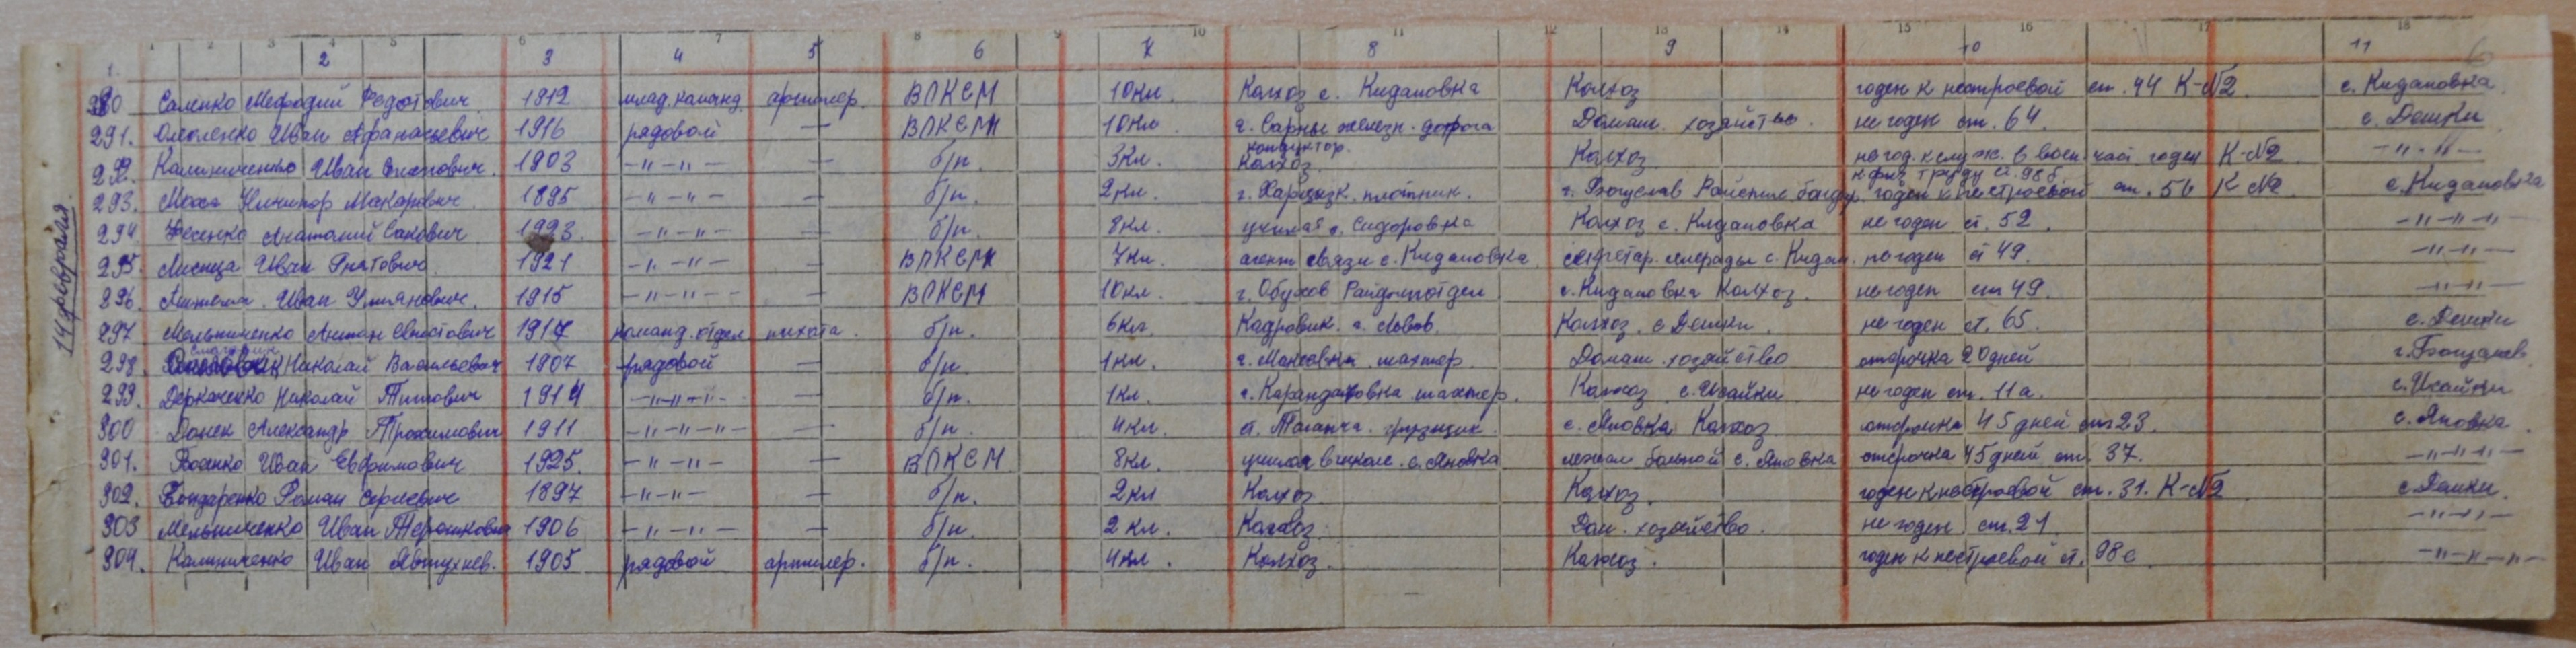 1 2 3 4 5 6 7 8 9 10 11 12 13 14 15 16 17 18
1. 2 3 4 5 6 7 8 9 10 11 6
14 февраля.
290 Саленко Мефодий Федотович 1912 млад. команд. артилер. ВЛКСМ 10 кл. Колхоз с. Кидановка Колхоз годен к нестроевой ст. 44 К-№2 с. Кидановка
291. Омоленко Иван Афанасьевич 1916 рядовой — ВЛКСМ 10 кл. г. Сарны железн. дорога Домаш. хозяйство. не годен ст. 64. с. Дешки
кондуктор.
292. Калиниченко Иван 1903 -"-"- — б/п. 3 кл. Колхоз. Колхоз не год. к служ. в воен. част годен К-№2 -"-"-
к физ труду ст. 98б
293. Моха Макарович 1895 -"-"- — б/п. 2 кл. г. Харцызк. плотник. г. Богуслав годен к нестроевой ст. 56 К №2 с. Кидановка
294 Анатолий Савович 1923. -"-"- — б/п. 8 кл. с. Сидоровка Колхоз с. Кидановка не годен ст. 52. -"-"-"-
295. Лисица Иван Гнатович 1921 -"-"- — ВЛКСМ 7 кл. агент связи с. Кидановка секретар. сельрады с. Кидан. не годен ст 49. -"-"-
296. Иван Улянович. 1915 -"-"- — ВЛКСМ 10 кл. г. Обухов с. Кидановка Колхоз. не годен ст 49. -"-"-
297 Мельниченко Антон 1917 команд. отдел пихота. б/п. 6 кл. Кадровик. г. Львов. Колхоз. с Дешки. не годен ст. 65. с. Дешки
298. Николай Васильевич 1907 рядовой — б/п. 1 кл. г. Макеевка шахтер. Домаш. хозяйство отсрочка 20 дней г. Богуслав
299. Деркаченко Николай Титович 1914 -"-"-"- — б/п. 1 кл. шахтер. Колхоз с. Исайки не годен ст. 11а. с. Исайки
300 Донек Александр Трохимович 1911 -"-"-"- — б/п. 4 кл. ст. Таганча. грузщик с. Яновка Колхоз отсрочка 45 дней ст 23. с. Яновка.
301. Иван Евфимович 1925. -"-"- — ВЛКСМ 8 кл. в школе. с. Яновка лежал больной с. Яновка отсрочка 45 дней ст. 37. -"-"-"-
302. Бондаренко Роман Сергеевич 1897 -"-"- — б/п. 2 кл Колхоз Колхоз. годен к нестроевой ст. 31. К-№2 с. Дешки.
303 Мельниченко Иван 1906 -"-"- — б/п. 2 кл. Колхоз. Дом. хозяйство. не годен ст. 21. -"-"-
304. Калиниченко Иван Явтухнев. 1905 рядовой артилер. б/п. 4 кл. Колхоз. Колхоз. годен к нестроевой ст. 98с -"-"-"-